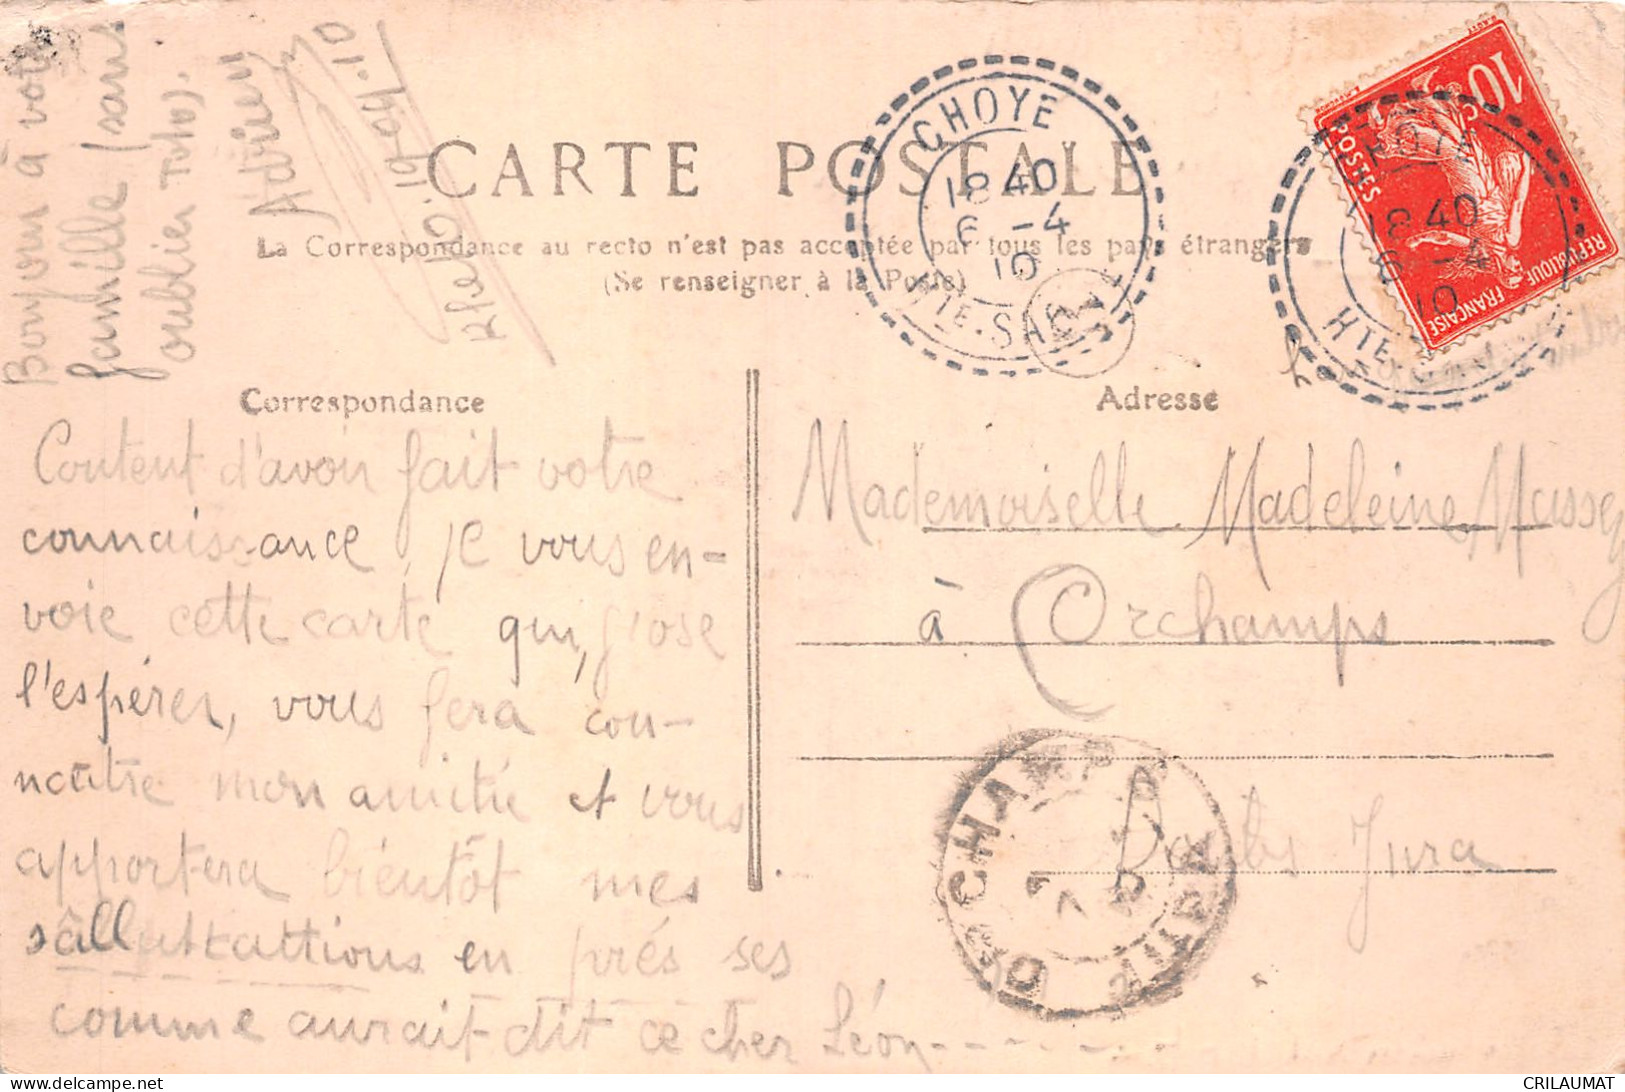 Bonjour à votre
famille (sans
oublier Toto).
Adrien
CARTE POSTALE
La Correspondance au recto n'est pas acceptée par tous les pays étrangers
(Se renseigner à la Poste)
CHOYE
18 40
6 -4
10
HTE-SAÔNE
10 c
POSTES
REPUBLIQUE FRANÇAISE
CHOYE
18 40
6 -4
10
HTE-SAÔNE
Correspondance
Content d'avoir fait votre
connaissance, je vous en-
voie cette carte qui, j'ose
l'espérer, vous fera con-
naître mon amitié et vous
apportera bientôt mes
sâlluttattions en prés ses
comme aurait dit ce cher Léon
Adresse
Mademoiselle Madeleine Massey
à Orchamps
Doubs Jura
ORCHAMPS
JURA
CRILAUMAT